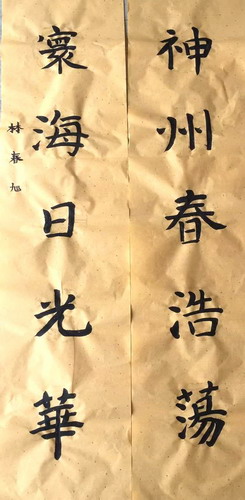 神州春浩蕩
寰海日光華
林春旭